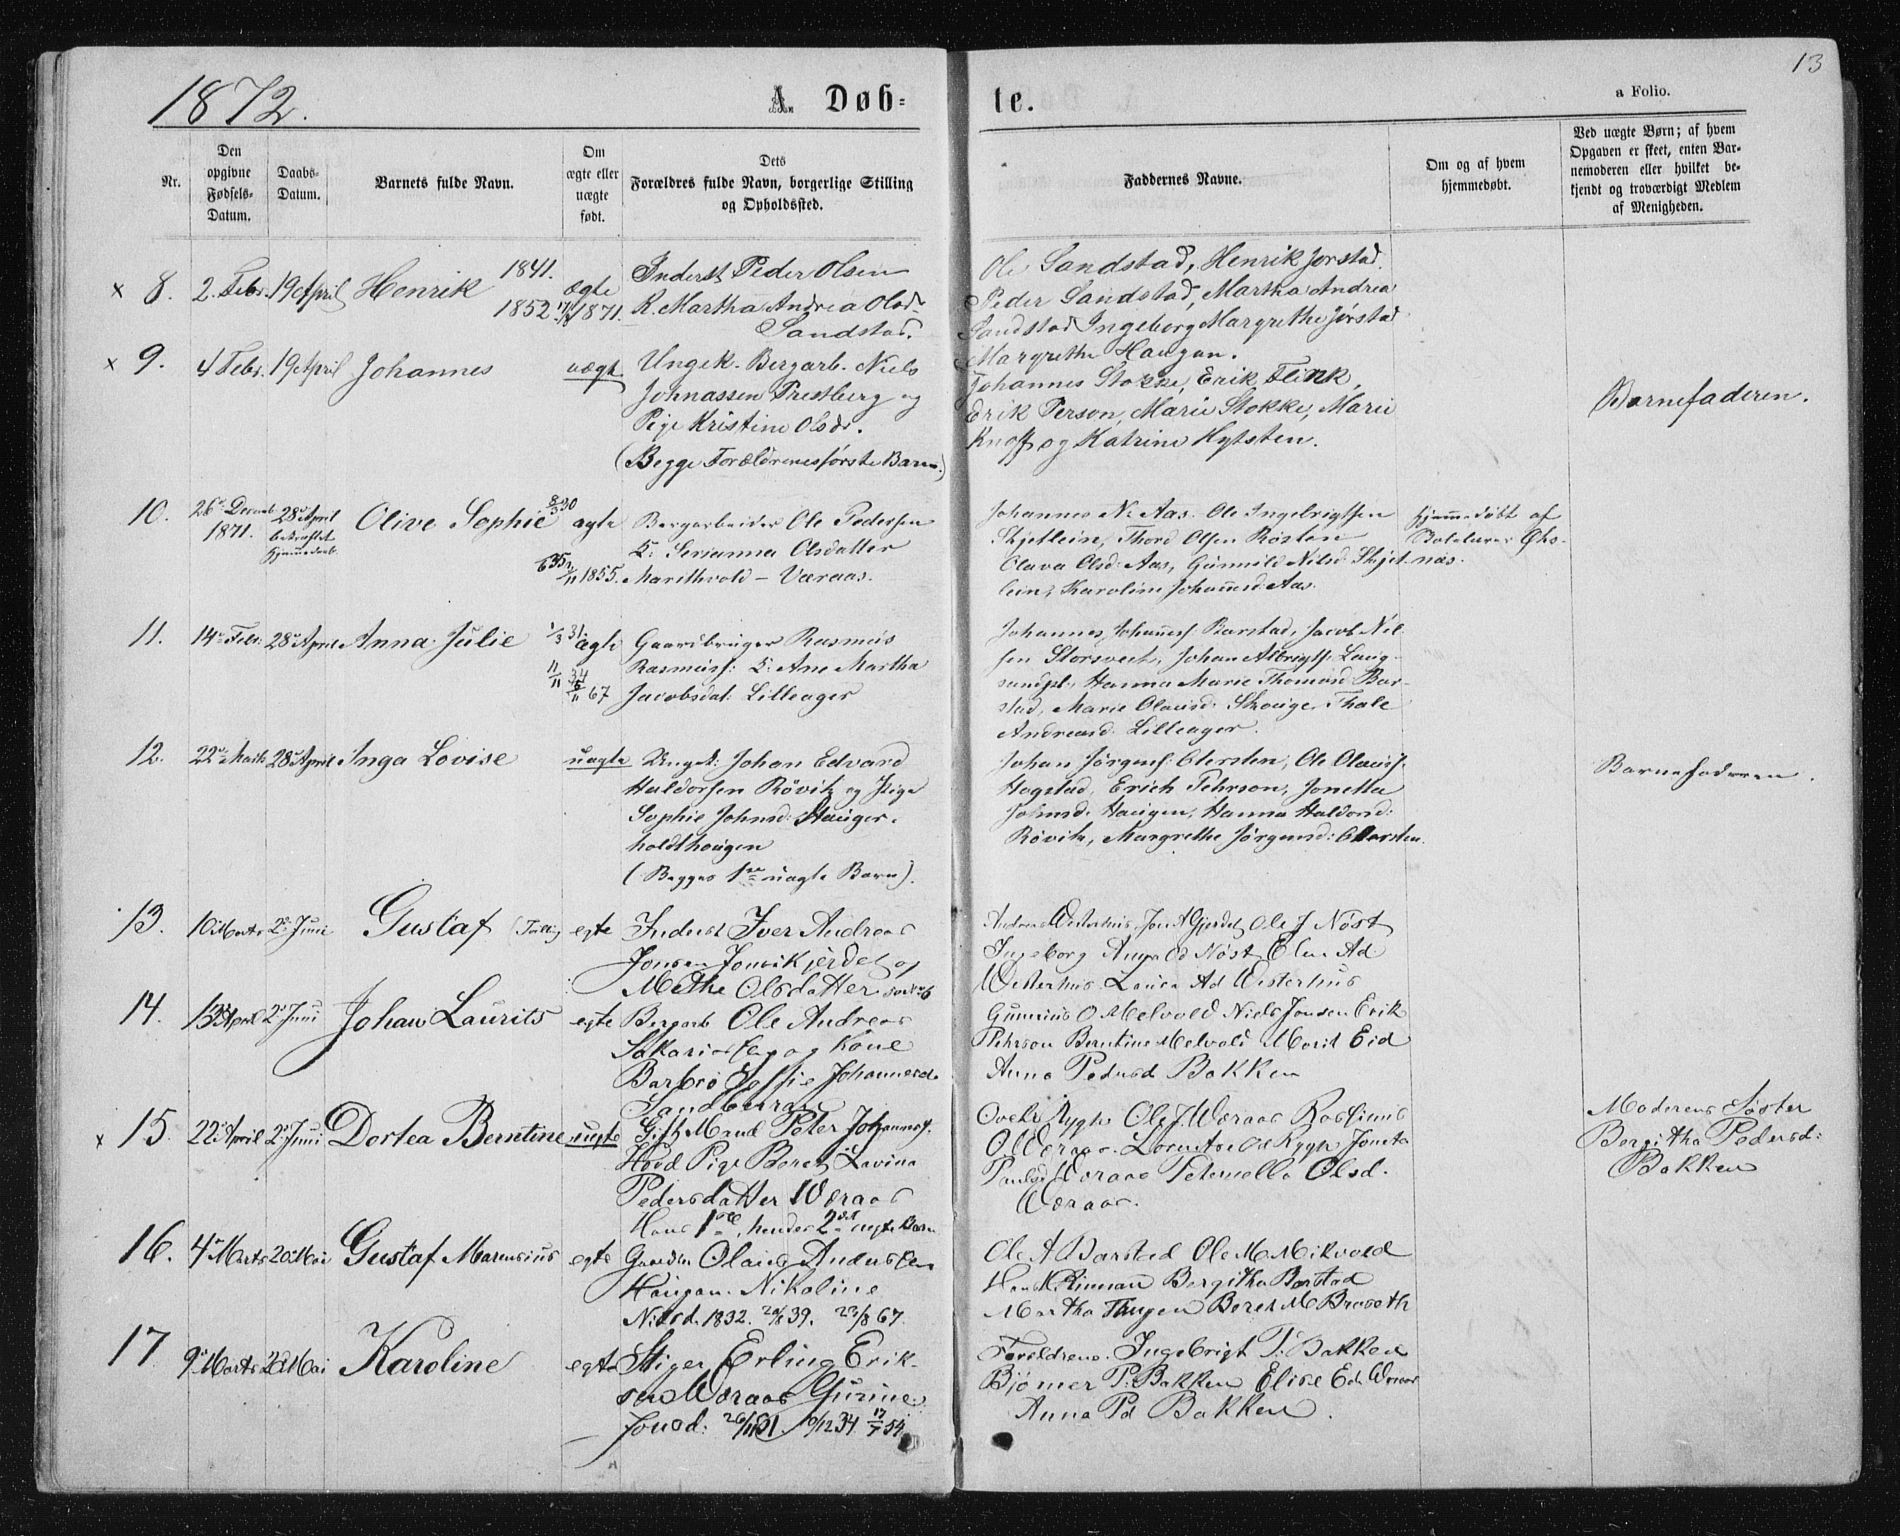 13
1872.
A. Døb-
te.
a Folio.
Nr.
Den
opgivne
Fødsels-
Datum.
Daabs-
Datum.
Barnets fulde Navn.
Om
ægte eller
uægte
født.
Dets
Forældres fulde Navn, borgerlige Stilling
og Opholdssted.
Faddernes Navne.
Om og af hvem
hjemmedøbt.
Ved uægte Børn; af hvem
Opgaven er skeet, enten Bar-
nemoderen eller hvilket be-
kjendt og troværdigt Medlem
af Menigheden.
x 8. 2. Febr. 19 April Henrik
1841.
1852
ægte
1871.
Inderst Peder Olsen
K. Martha Andrea Olsd.
Sandstad.
Ole Sandstad, Henrik Jørstad.
Peder Sandstad, Martha Andrea
Sandstad Ingeborg Margrethe Jørstad
Margrethe Haugan.
x 9. 4 Febr. 19 April Johannes
uægt.
Ungk. Bergarb. Niels
Johnassen Prestberg og
Pige Kristine Olsdr.
(Begge Forældrenes første Barn.)
Johannes Stokke, Erik Flink,
Erik Person, Marie Stokke, Marie
Knoff og Katrine Hytsten.
Barnefaderen.
10. 26 Decemb 1871. 28 April
bekræftet
hjemmedaab.
Olive Sophie
8/3 30
ægte
1855.
Bergarbeider Ole Pedersen
K: Serianna Olsdatter
Marithvold - Væraas.
Johannes N. Aas. Ole Ingebrigtsen
Skjetlein, Thord Olsen Røsten
Olava Olsd: Aas, Gunnild Nilsd: Skjet-
lein, Karoline Johannsd: Aas.
Hjemmedøbt af
næs.
11. 14 Febr. 28 April Anna Julie
1/3 31
11/11 34
67
ægte
Gaardbruger Rasmus
Rasmusf: K: Ane Martha
Jacobsdat: Lilleager
Johannes Johannesf. Barstad, Jacob Nil-
sen Storsvest, Johan Albrigtsf. Laug-
sandpl., Hanna Marie Thomasd. Bar-
stad, Marie Olausd: Skouge, Thale
Andreasd. Lilleager.
12. 22 Marts 28 April Inga Lovise
uægte
Ungk: Johan Edvard
Haldorsen Røvik og Pige
Sophie Johnsd: Stauger-
holdthaugen
(Begges 1ste uægte Barn).
Johan Jørgensf: Olersten, Ole Olausf.
Hogstad, Erich Pehrson, Jonetta
Johnsd. Haugen, Hanna Haldorsd:
Røvik, Margrethe Jørgensd: Olersten.
Barnefaderen.
13. 10 Marts 2 Juni Gustaf
egte
Inderst Iver Andreas
Jonsen
Methe Olsdatter
Nøst
Ingeborg Anna Od Nøst Elen Ad
Westerhus Laura Ad Westerhus
14. 13 April 2 Juni Johan Laurits
egte
Bergarb Ole Andreas
Sakariasen og Kone
Barbro Sofie Johannesd.
Gunerius O Melvold Niels Jonsen Erik
Pehrson Berntine Melvold Marit Eid
Anna Pedersd Bakken
x 15. 22 April 2 Juni Dortea Berntine
uegte
Gift Mand Peter Johannesf.
Hood Pige Beret Lavina
Pedersdatter Weraas
Hans 1ste, hendes 2det uegte Barn
Ole J. Weraas
O. Weraas. Joneta
Paulsd Weraas Peternella Olsd.
Weraas.
Moderens Søster
Bergitha Pedersd:
Bakken
16. 4 Marts 20 Mai Gustaf Marensius
egte
Gaardm Olaus Andersen
Haugan. Nikoline
Nilsd. 1832. 20/8 39. 23/8 67.
Ole A Barstad Ole M Mikvold
Hans Kinnan Bergitha Barstad
Martha Haugen Beret M Braseth
17 9 Marts 20 Mai Karoline
egte
Stiger Erling Erik-
sen Weraas Gurine
Jonsd: 26/11 31. 10/12 34 17/7 54
Forældrene. Ingebrigt P: Bakken
Bjømer P: Bakken Elise Ed. Weraas
Anna Pd Bakken.